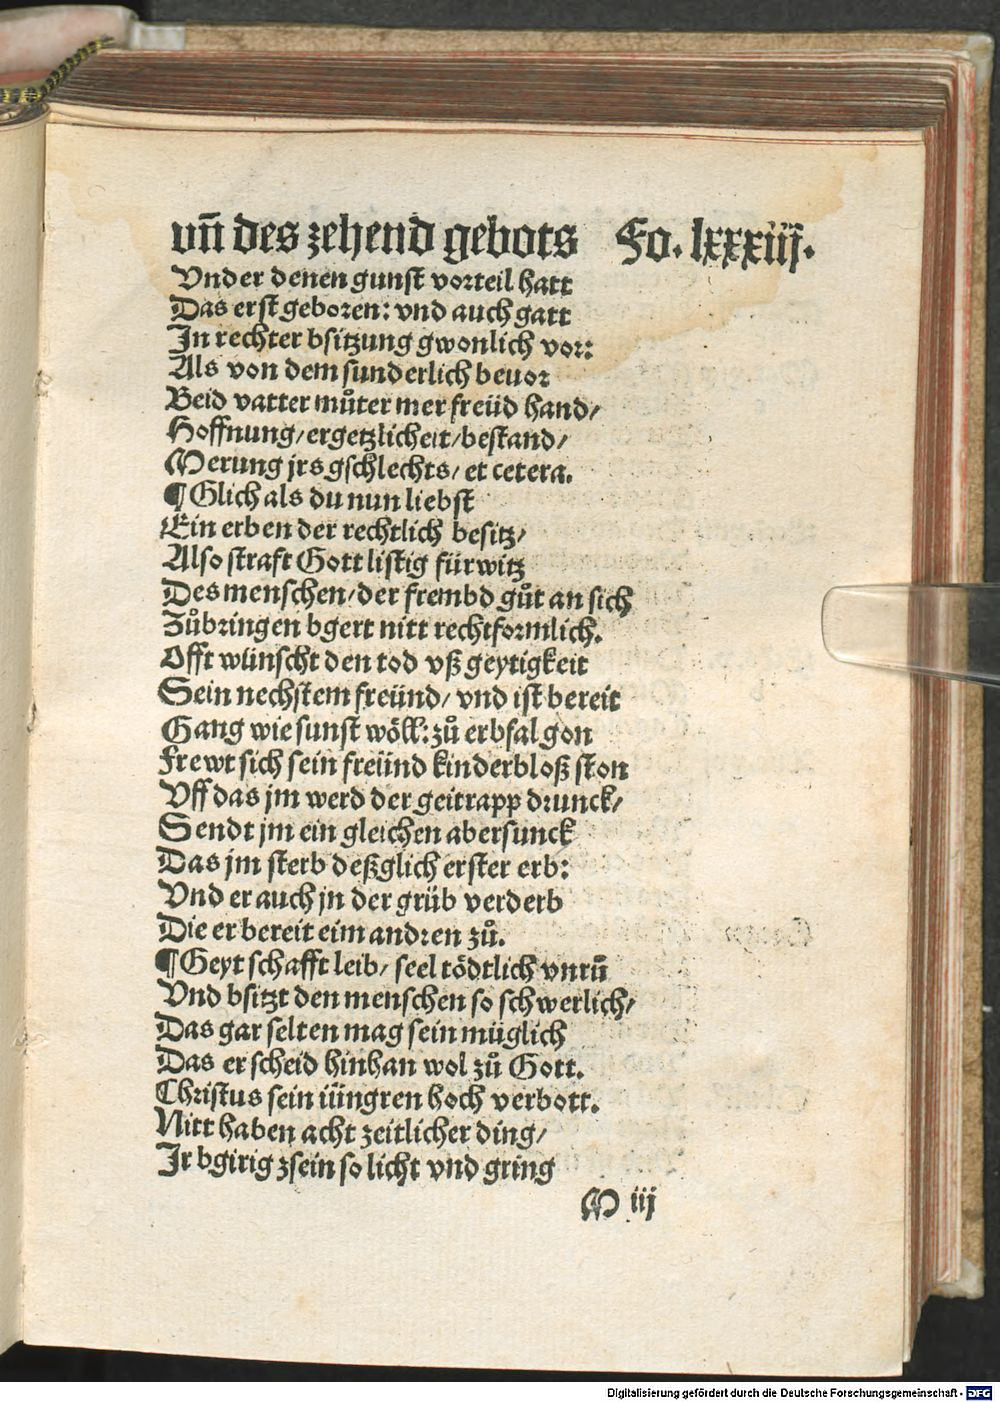 vñ des zehend gebots Fo. lxxxiij.
Vnder denen gunst vorteil hatt
Das erst geboren: vnd auch gatt
In rechter bsitzung gwonlich vor:
Als von dem sunderlich beuor
Beid vatter můter mer freüd hand/
Hoffnung/ ergetzlicheit/ bestand/
Merung jrs gschlechts/ et cetera.
¶ Glich als du nun liebst
Ein erben der rechtlich besitz/
Also straft Gott listig fürwitz
Des menschen/ der frembd gůt an sich
Zůbringen bgert nitt rechtformlich.
Offt wünscht den tod vß geytigkeit
Sein nechstem freünd/ vnd ist bereit
Gang wie sunst wöll: zů erbfal gon
Frewt sich sein freünd kinderbloß ston
Vff das jm werd der geitrapp drunck/
Sendt jm ein gleichen abersunck
Das jm sterb deßglich erster erb:
Vnd er auch jn der grüb verderb
Die er bereit eim andren zů.
¶ Geyt schafft leib/ seel tödtlich vnrů
Vnd bsitzt den menschen so schwerlich/
Das gar selten mag sein müglich
Das er scheid hinhan wol zů Gott.
Christus sein iüngren hoch verbott.
Nitt haben acht zeitlicher ding/
Ir bgirig zsein so licht vnd gring
M iij
Digitalisierung gefördert durch die Deutsche Forschungsgemeinschaft - DFG